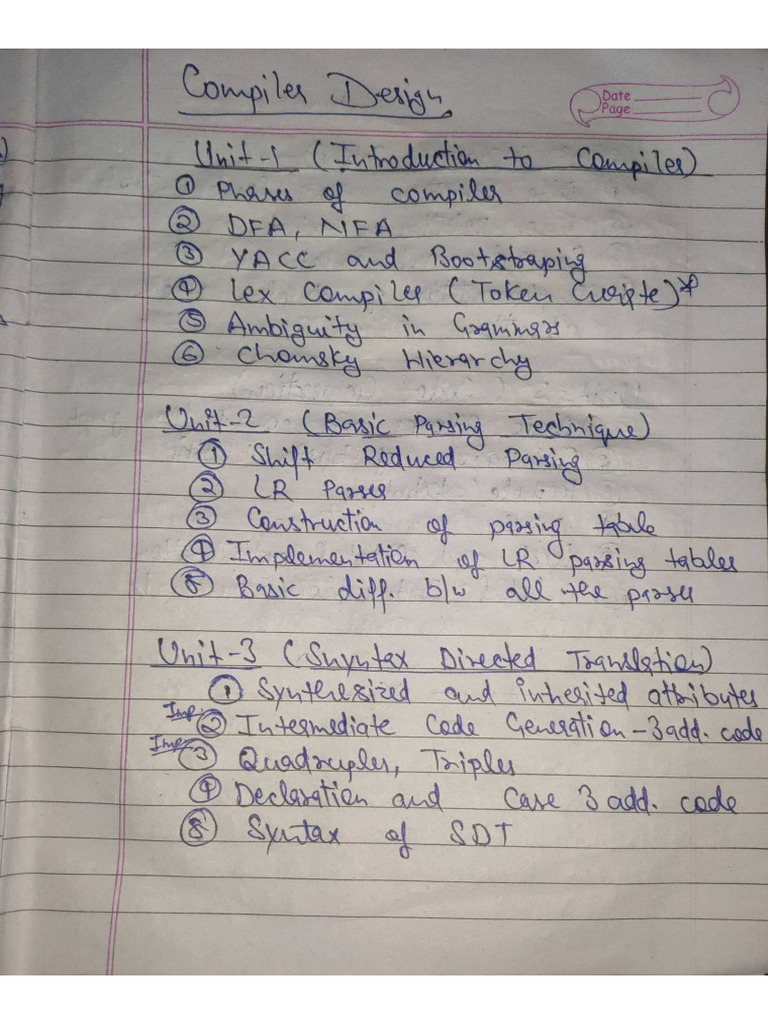 Compiler Design
Date
Page
Unit-1 (Introduction to Compiler)
① Phases of compiler
② DFA, NFA
③ YACC and Bootstraping
④ Lex Compiler (Token)*
⑤ Ambiguity in Grammars
⑥ Chomsky Hierarchy
Unit-2 (Basic Parsing Technique)
① Shift Reduced Parsing
② LR Parser
③ Construction of parsing table
④ Implementation of LR parsing tables
⑤ Basic diff. b/w all the parser
Unit-3 (Snyntax Directed Translation)
① Synthesized and inherited attributes
Imp. ② Intermediate Code Generation - 3 add. code
Imp. ③ Quadruples, Triples
④ Declaration and Case 3 add. code
⑤ Syntax of SDT